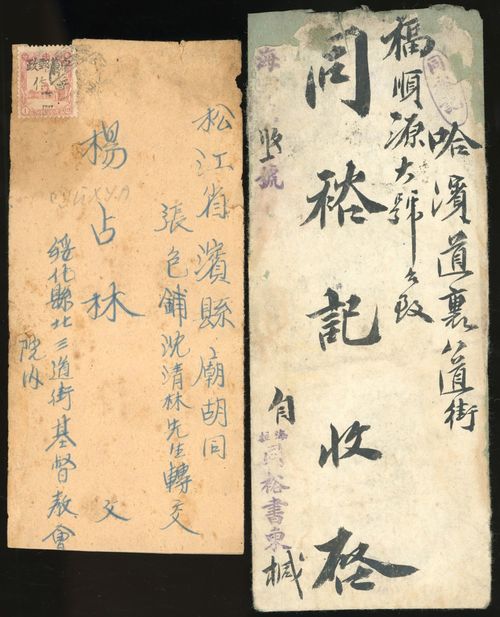 松江省濱縣廟胡同
張包鋪沈清林先生轉交
楊占林 父
綏化縣北三道街基督教會
院内
哈濱道裏八道街
福順源大號
同裕記收啓
海
號
自
裕書柬緘